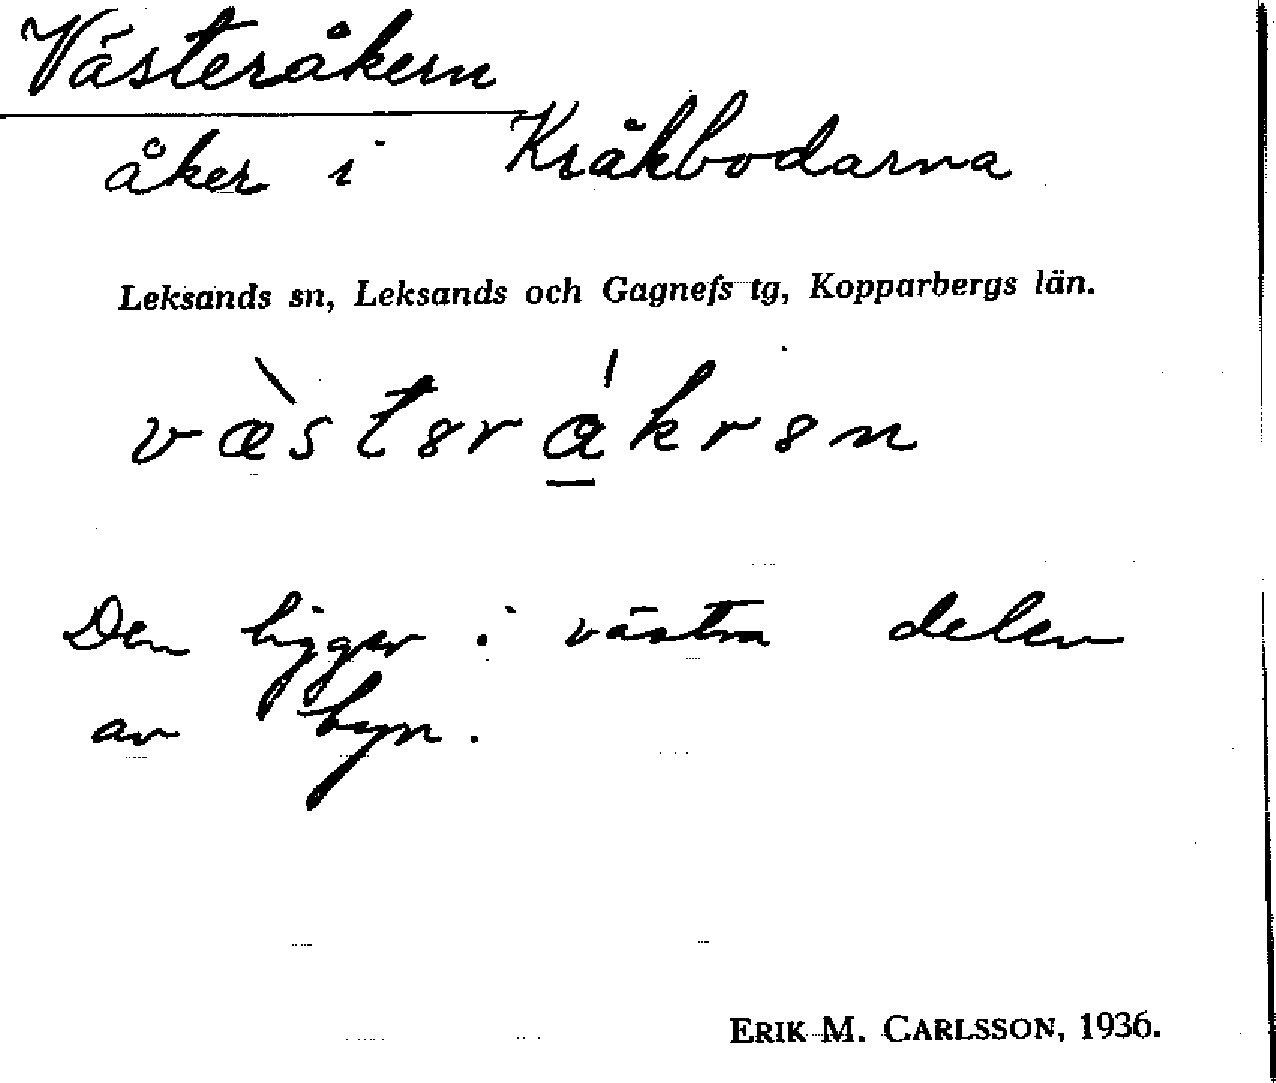 Västeråkern
åker i Kråkbodarna
Leksands sn, Leksands och Gagnefs tg, Kopparbergs län.
væ̀stərɑ́krən
Den ligger i västra delen
av byn.
ERIK M. CARLSSON, 1936.